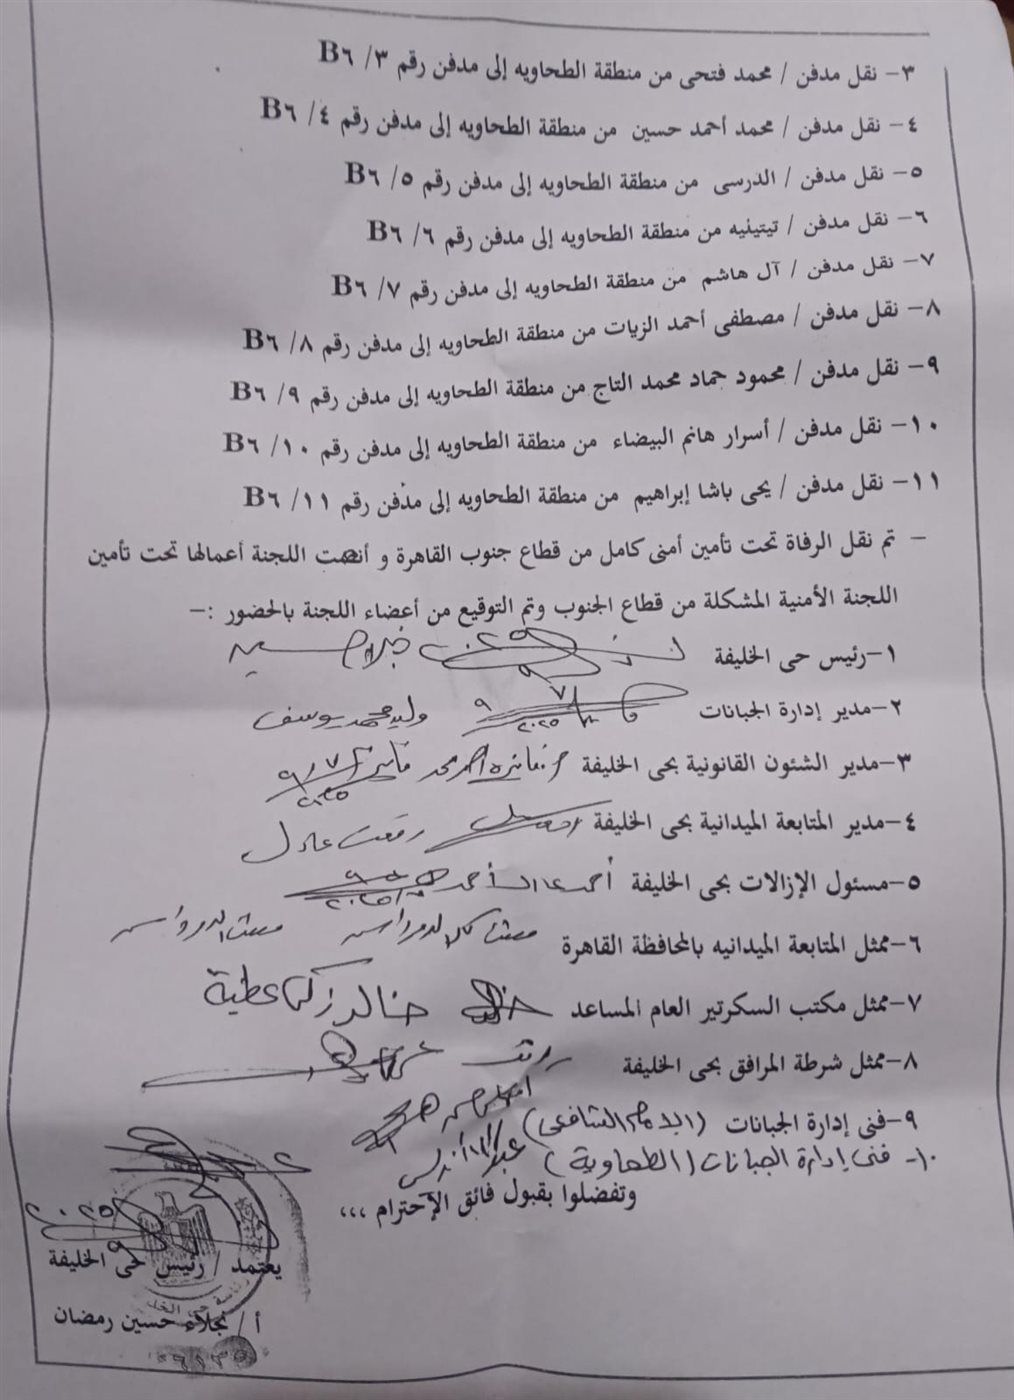 ٣- نقل مدفن / محمد فتحى من منطقة الطحاويه إلى مدفن رقم ٣/ B٦
٤- نقل مدفن / محمد أحمد حسين من منطقة الطحاويه إلى مدفن رقم ٤/ B٦
٥- نقل مدفن / الدرسى من منطقة الطحاويه إلى مدفن رقم ٥/ B٦
٦- نقل مدفن / تيتينيه من منطقة الطحاويه إلى مدفن رقم ٦/ B٦
٧- نقل مدفن / آل هاشم من منطقة الطحاويه إلى مدفن رقم ٧/ B٦
٨- نقل مدفن / مصطفى أحمد الزيات من منطقة الطحاويه إلى مدفن رقم ٨/ B٦
٩- نقل مدفن / محمود حماد محمد التاج من منطقة الطحاويه إلى مدفن رقم ٩/ B٦
١٠- نقل مدفن / أسرار هانم البيضاء من منطقة الطحاويه إلى مدفن رقم ١٠/ B٦
١١- نقل مدفن / يحى باشا إبراهيم من منطقة الطحاويه إلى مدفن رقم ١١/ B٦
- تم نقل الرفاة تحت تأمين أمنى كامل من قطاع جنوب القاهرة و أنهت اللجنة أعمالها تحت تأمين
اللجنة الأمنية المشكلة من قطاع الجنوب وتم التوقيع من أعضاء اللجنة بالحضور :-
١-رئيس حى الخليفة
٢-مدير إدارة الجبانات ٩/٧ ٢٠٢٥ وليد محمد يوسف
٣-مدير الشئون القانونية بحى الخليفة ٩/٧ ٢٠٢٥
٤-مدير المتابعة الميدانية بحى الخليفة رفعت عادل
٥-مسئول الإزالات بحى الخليفة أحمد
٦-ممثل المتابعة الميدانيه بالمحافظة القاهرة
٧-ممثل مكتب السكرتير العام المساعد خالد زكى عطية
٨-ممثل شرطة المرافق بحى الخليفة
٩-فنى إدارة الجبانات (الإمام الشافعى)
١٠- فنى إدارة الجبانات (الطحاوية)
وتفضلوا بقبول فائق الإحترام ،،،
يعتمد / رئيس حى الخليفة
أ / نجلاء حسين رمضان